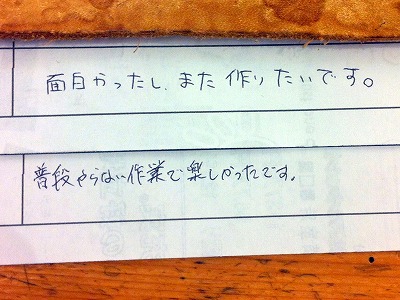 面白かったし、また作りたいです。
普段やらない作業で楽しかったです。